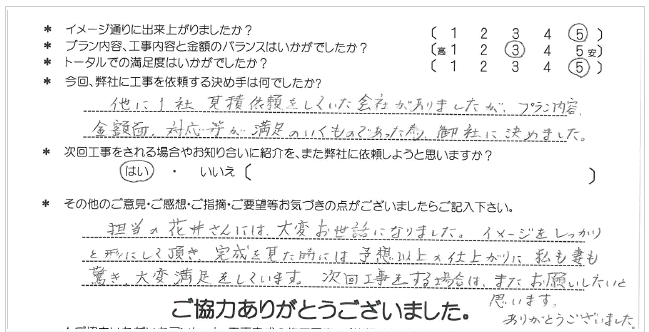 * イメージ通りに出来上がりましたか? ( 1 2 3 4 5 )
* プラン内容、工事内容と金額のバランスはいかがでしたか? (高 1 2 3 4 5 安)
* トータルでの満足度はいかがでしたか? ( 1 2 3 4 5 )
* 今回、弊社に工事を依頼する決め手は何でしたか?
他に1社 見積依頼をしていた会社がありましたが、プラン内容、
金額面、対応等が満足のいくものであった為、御社に決めました。
* 次回工事をされる場合やお知り合いに紹介を、また弊社に依頼しようと思いますか?
はい ・ いいえ ( )
* その他のご意見・ご感想・ご指摘・ご要望等お気づきの点がございましたらご記入下さい。
担当の花井さんには、大変お世話になりました。イメージをしっかり
と形にして頂き、完成を見た時には予想以上の仕上がりに 私も妻も
驚き、大変満足をしています。次回工事をする場合は、またお願いしたいと
思います。
ありがとうございました。
ご協力ありがとうございました。